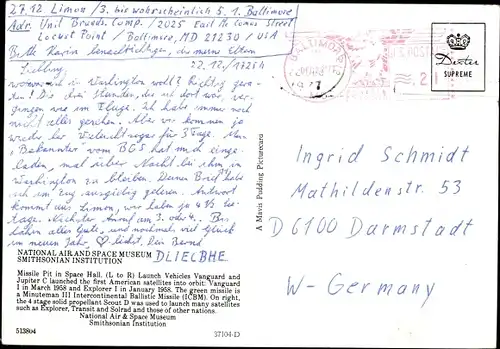 27.12 Limon /3. bis wahrscheinlich 5. 1. Baltimore
Adr. Unit Brands. Comp. / 2025 East Mc Comas Street
Locust Point / Baltimore, MD 21230 / USA
Bitte Karin benachrichtigen, die meine Eltern
Liebling 22.12./1725h
war es in Washington toll? Richtig gewe-
sen! Die drei Stunden, die ich dort war, ver-
gingen wie im Fluge. Ich habe immer noch
nicht alles gesehen. Aber wir kommen ja
wieder her voraussichtlich für 3 Tage. Mein
"Bekannter vom BGS hat mich einge-
laden, mal über Nacht bei ihm in
Washington zu bleiben. Deinen Brief habe
ich im Zug ausgiebig gelesen. Antwort
kommt aus Limon, wir haben ja 4 1/2 See-
tage. Nächster Anruf am 3. oder 4. Bis
dahin alles Gute, und nochmals viel Glück
im neuen Jahr, ♡lichst. Dein Bernd
DLIELBHE
NATIONAL AIR AND SPACE MUSEUM
SMITHSONIAN INSTITUTION
Missile Pit in Space Hall. (L to R) Launch Vehicles Vanguard and
Jupiter C launched the first American satellites into orbit: Vanguard
I in March 1958 and Explorer I in January 1958. The green missile is
a Minuteman III Intercontinental Ballistic Missile (ICBM). On right,
the 4 stage solid propellant Scout D was used to launch many satellites
such as Explorer, Transit and Solrad and those of other nations.
National Air & Space Museum
Smithsonian Institution
513804
37104-D
A Mavis Pudding Picturecard
BALTIMORE
U.S. POST
Dexter
SUPREME
Ingrid Schmidt
Mathildenstr. 53
D6100 Darmstadt
W-Germany